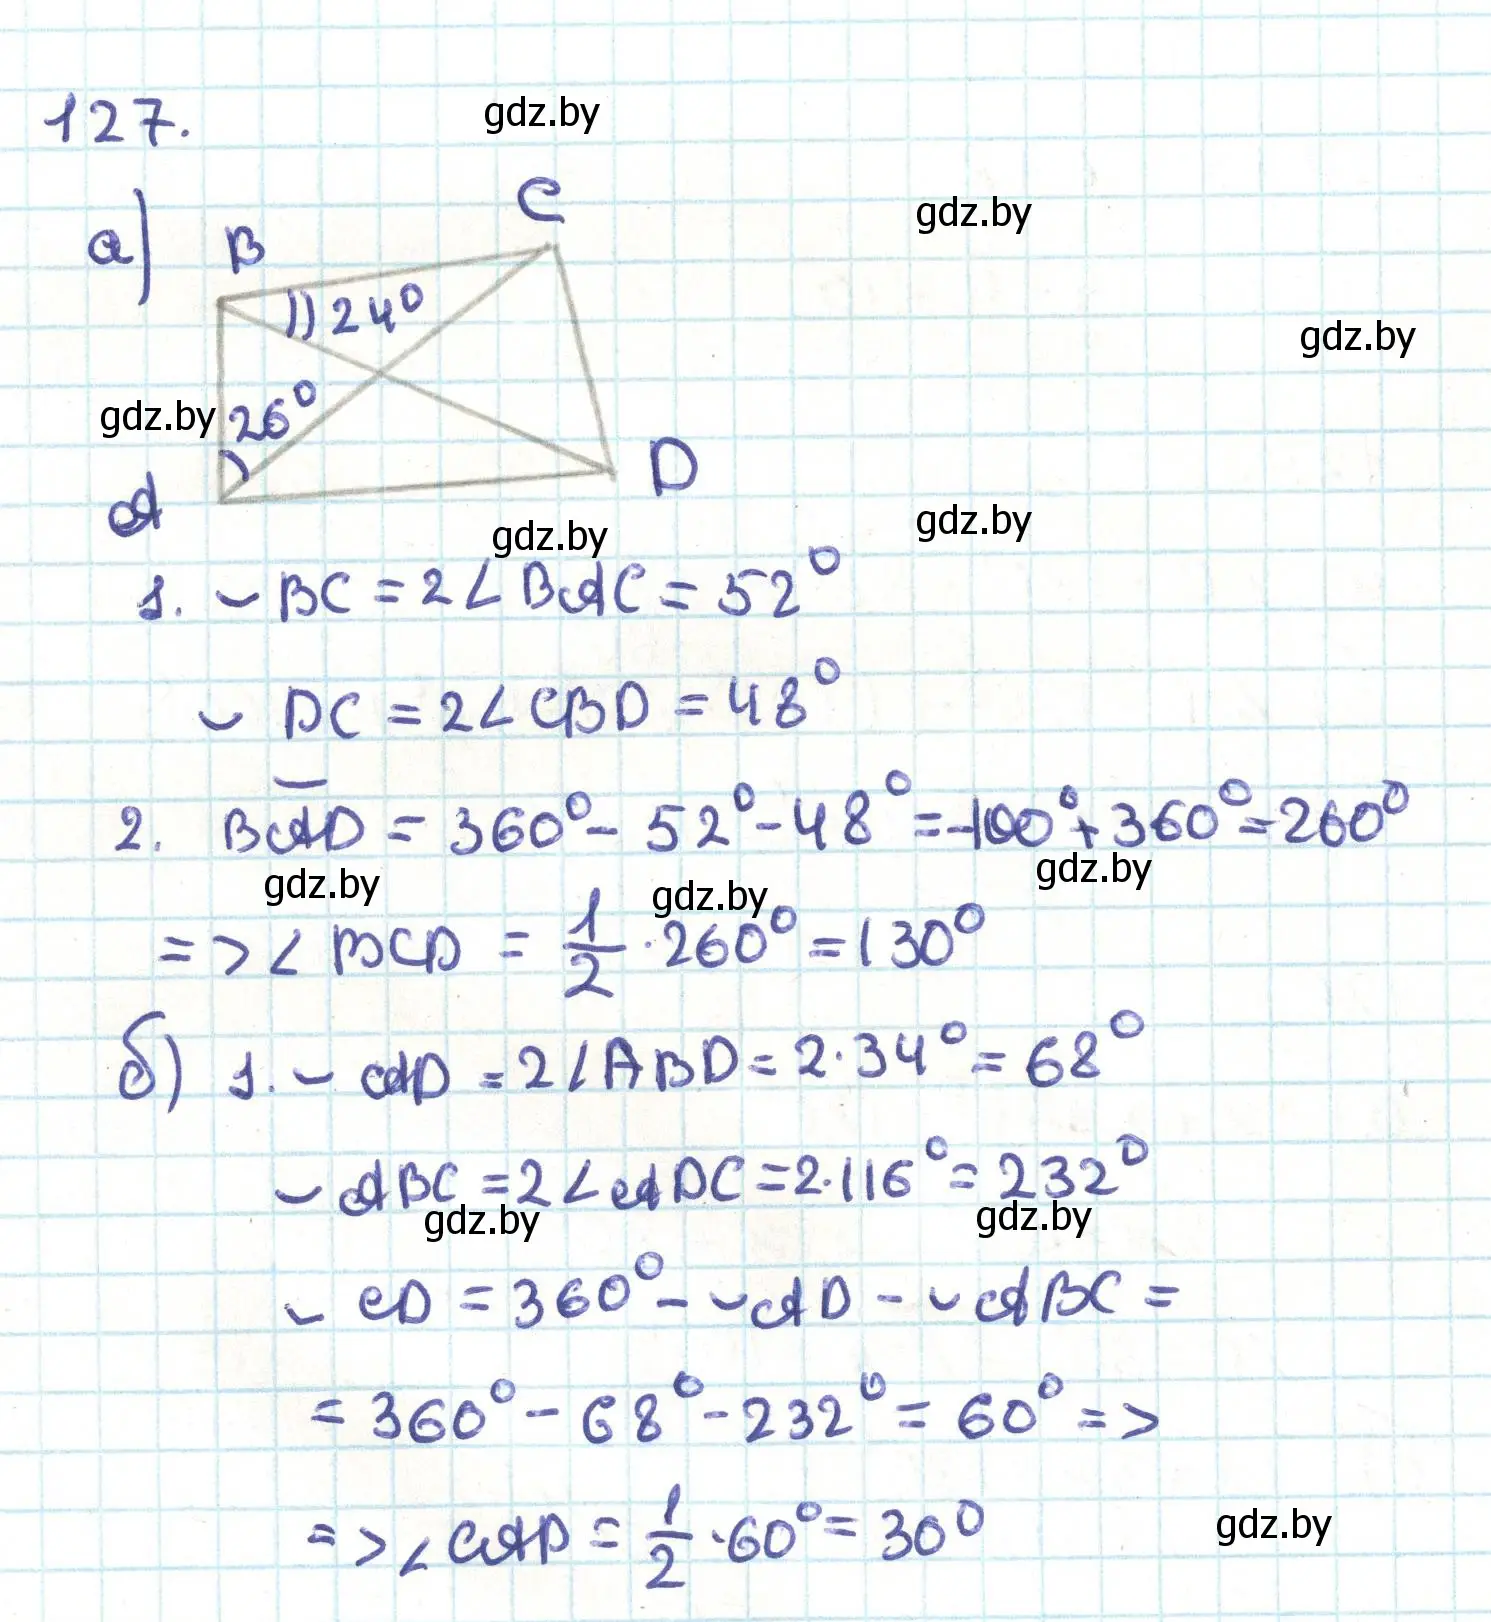 127.
gdz.by
gdz.by
а)
B
C
24°
gdz.by
gdz.by
26°
A
D
gdz.by
gdz.by
1. ⌣ BC = 2∠BAC = 52°
⌣ DC = 2∠CBD = 48°
2. ⌣BAD = 360° - 52° - 48° = -100° + 360° = 260°
gdz.by
gdz.by
gdz.by
=> ∠BCD = 1/2 · 260° = 130°
б) 1. ⌣ AD = 2∠ABD = 2·34° = 68°
⌣ ABC = 2∠ADC = 2·116° = 232°
gdz.by
gdz.by
⌣ CD = 360° - ⌣AD - ⌣ABC =
= 360° - 68° - 232° = 60° =>
=> ∠CAD = 1/2 · 60° = 30°
gdz.by